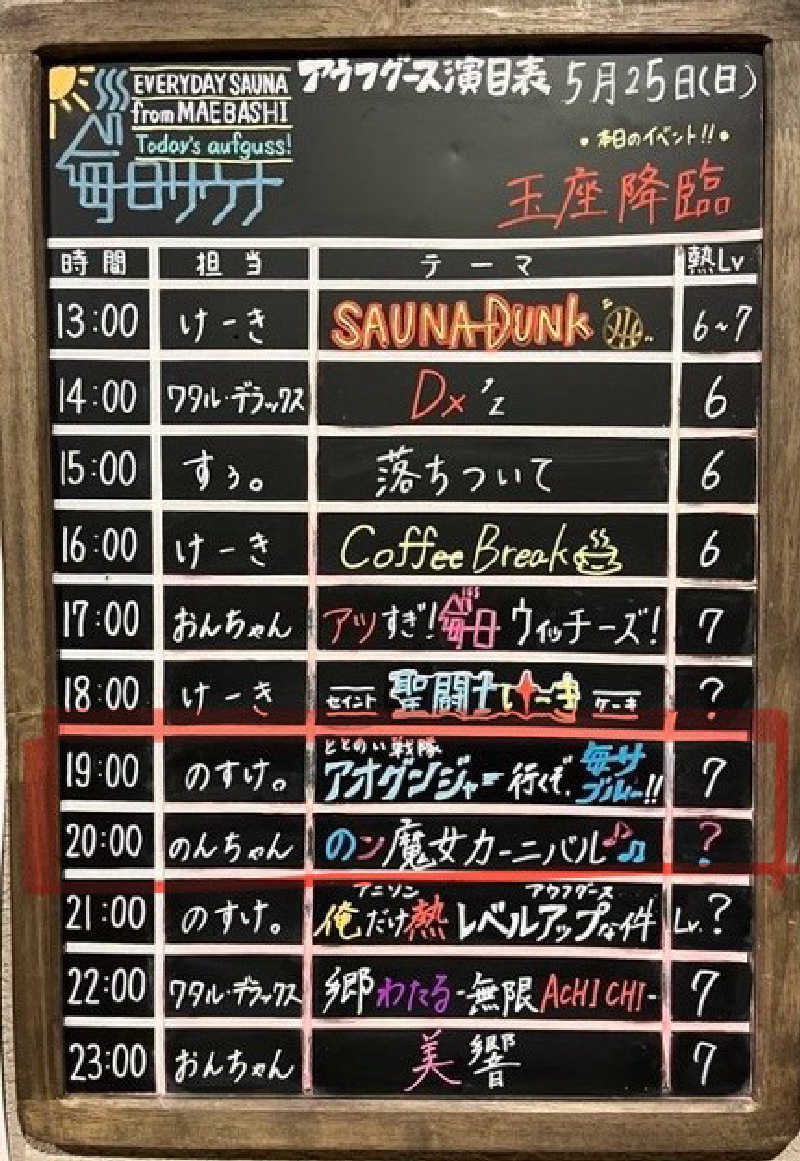 EVERYDAY SAUNA
from MAEBASHI
Today's aufguss!
毎日サウナ
アウフグース演目表 5月25日(日)
•本日のイベント!!•
玉座降臨
時間 担当 テーマ 熱Lv
13:00 けーき SAUNA DUNK 6~7
14:00 ワタル・デラックス Dx'z 6
15:00 すぅ。 落ちついて 6
16:00 けーき Coffee Break 6
17:00 おんちゃん アツすぎ!毎日ウィッチーズ! 7
18:00 けーき 聖闘士けーき ?
セイント ケーキ
ととのい戦隊
19:00 のすけ。 アオグンジャー行くぞ、毎サブルー!! 7
20:00 のんちゃん のン魔女カーニバル ?
アニソン アウフグース
21:00 のすけ。 俺だけ熱レベルアップな件 Lv.?
22:00 ワタル・デラックス 郷わたる-無限ACHICHI- 7
23:00 おんちゃん 美響 7